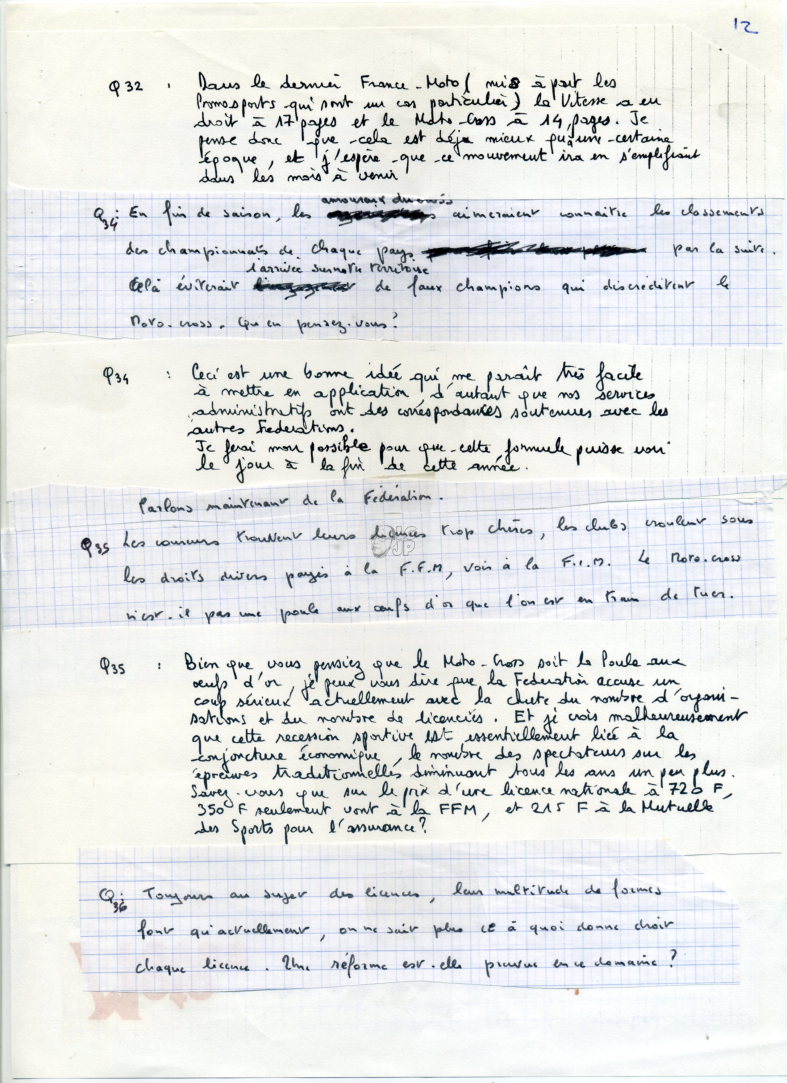 12
Q32 : Dans le dernier France-Moto ( mis à part les
Promosports qui sont un cas particulier) la Vitesse a eu
droit à 17 pages et le Moto-Cross à 14 pages. Je
pense donc que cela est déja mieux qu'à une certaine
époque, et j'espère que ce mouvement ira en s'emplifiant
dans les mois à venir
amoureux du cross
Q34: En fin de saison, les aimeraient connaitre les classements
des championnats de chaque pays par la suite.
l'arrivée sur notre territoire
Celà éviterait de faux champions qui discréditent le
Moto-cross. Que en pensez-vous?
Q34 : Ceci est une bonne idée qui me paraît très facile
à mettre en application, d'autant que nos services
administratifs ont des correspondances soutenues avec les
autres Federations.
Je ferai mon possible pour que cette formule puisse voir
le jour à la fin de cette année.
Parlons maintenant de la Fédération.
Q35 Les coureurs trouvent leurs licences trop chères, les clubs croulent sous
les droits divers payés à la F.F.M, voir à la F.I.M. Le Moto-cross
n'est-il pas une poule aux oeufs d'or que l'on est en train de tuer.
JC JP
Q35 : Bien que vous pensiez que le Moto-Cross soit la Poule aux
oeufs d'or, je peux vous dire que la Federation accuse un
coup sérieux actuellement avec la chute du nombre d'organi-
sations et du nombre de licenciés. Et je vois malheureusement
que cette recession sportive est essentiellement liée à la
conjoncture économique, le nombre des spectateurs sur les
épreuves traditionnelles diminuant tous les ans un peu plus.
Savez-vous que sur le prix d'une licence nationale à 720 F,
350 F seulement vont à la FFM, et 215 F à la Mutuelle
des Sports pour l'assurance?
Q36: Toujours au sujet des licences, leur multitude de formes
font qu'actuellement, on ne sait plus ce à quoi donne droit
chaque licence. Une réforme est-elle prevue en ce domaine?